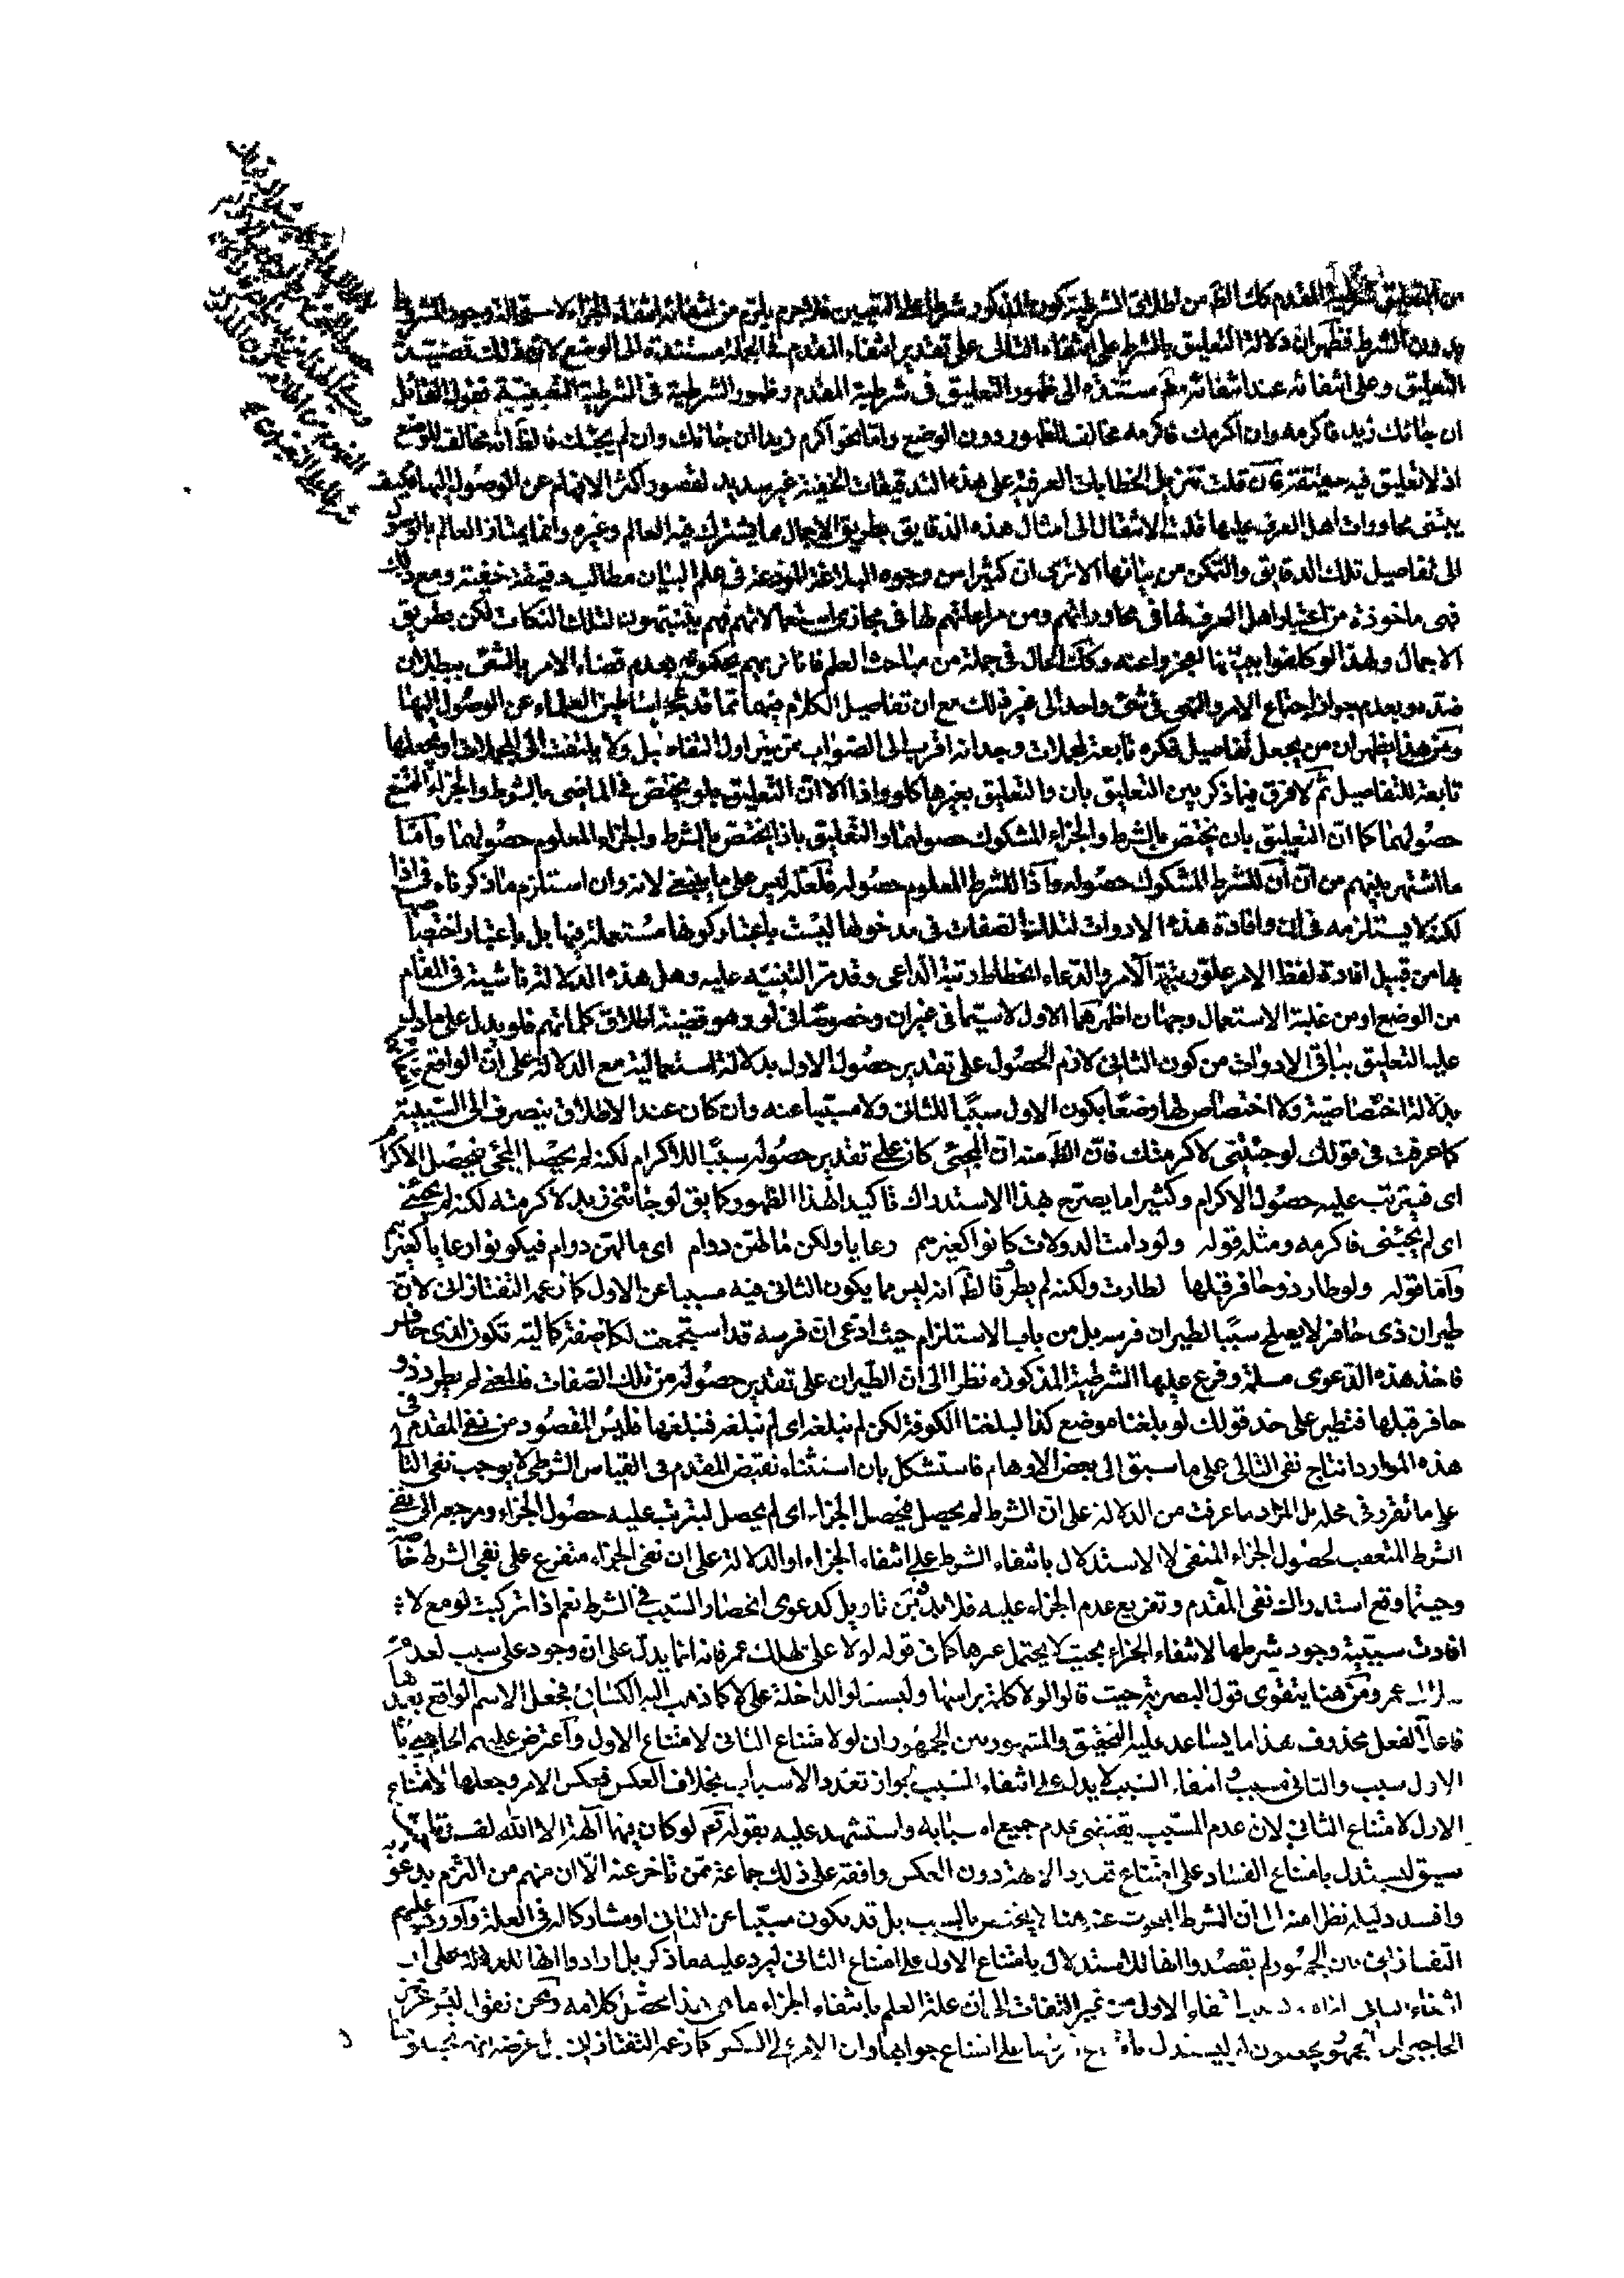 من التعليق شرطية المقدم كك الظ من اطلاق الشرطية كون المذكور شرطا على التعيين فلا جرم يلزم من انتفائه انتفاء الجزاء لاستحالة وجود المشروط
بدون الشرط فظهر ان دلالة التعليق بالشرط على انتفاء التالى على تقدير انتفاء المقدم فى الجملة مستندة الى الوضع لان ذلك قضية
التعليق وعلى انتفائه عند انتفائه مطلقا مستندة الى ظهور التعليق فى شرطية المقدم وظهور الشرطية فى الشرطية التعيينية فقول القائل
ان جائك زيد فاكرمه وان اكرمك فاكرمه مخالف للظهور دون الوضع واما نحو اكرم زيدا ان جائك وان لم يجئك فالظ انه مخالف للوضع
اذ لا تعليق فيه حقيقة فان قلت تنزيل الخطابات العرفية على هذه التدقيقات الخفية غير سديد لقصور اكثر الافهام عن الوصول اليها فكيف
يبتنى محاورات اهل العرف عليها قلت الانتقال الى امثال هذه الدقايق بطريق الاجمال مما يشترك فيه العالم وغيره وانما يمتاز العالم بالوصول
الى تفاصيل تلك الدقايق والتمكن من بيانها الا ترى ان كثيرا من وجوه البلاغة المودعة فى علم البيان مطالب دقيقة خفية ومع ذلك
فهى ماخوذة من اعتبار اهل العرف لها فى محاوراتهم ومن مراعاتهم لها فى مجارى استعمالاتهم فهم يتنبهون لتلك النكات لكن بطريق
الاجمال ولهذا لو كلفوا ببيانها لعجزوا عنه وكك الحال فى جملة من مباحث العلم فانا نريهم يحكمون بعدم قضاء الامر بالشئ ببطلان
ضده وبعدم جواز اجتماع الامر والنهى فى شئ واحد الى غير ذلك مع ان تفاصيل الكلام فيها مما قد تحير اساطين العلماء عن الوصول اليها
ومن هذا يظهر ان من يجعل تفاصيل فكره تابعة لمجملات وجدانه اقرب الى الصواب ممن يتداول التفاصيل ولا يلتفت الى المجملات او يجعلها
تابعة للتفاصيل ثم لا فرق فيما ذكر بين التعليق بان والتعليق بغيرها كلو واذا الا ان التعليق بلو يختص فى الماضى بالشرط والجزاء الممتنع
حصولهما كما ان التعليق بان يختص بالشرط والجزاء المشكوك حصولهما والتعليق باذا يختص بالشرط والجزاء المعلوم حصولهما واما
ما اشتهر بينهم من ان ان للشرط المشكوك حصوله واذا للشرط المعلوم حصوله فلعله ليس على ما ينبغى لانه وان استلزم ما ذكرناه فى اذا
لكنه لا يستلزمه فى ان وافادة هذه الادوات لتلك الصفات فى مدخولها ليست باعتبار كونها مستعملة فيها بل باعتبار اختصاصها
بها من قبيل افادة لفظ الامر علو رتبة الآمر والدعاء انحطاط رتبة الداعى وقد مر التنبيه عليه وهل هذه الدلالة ناشية فى المقام
من الوضع او من غلبة الاستعمال وجهان اظهرهما الاول لا سيما فى غير ان وخصوصا فى لو وهو قضية اطلاق كلماتهم فلو يدل على ما دل
عليه التعليق بباقى الادوات من كون الثانى لازم الحصول على تقدير حصول الاول بدلالة استعمالية مع الدلالة على ان الواقع
بدلالة اختصاصية ولا اختصاص لها وضعا بكون الاول سببا للثانى ولا مسببا عنه وان كان عند الاطلاق ينصرف الى السببية
كما عرفت فى قولك لو جئتنى لاكرمتك فان الظ منه ان المجئ كان على تقدير حصوله سببا للاكرام لكنه لم يحصل المجئ فيحصل الاكرام
اى فيترتب عليه حصول الاكرام وكثيرا ما يصرح بهذا الاستدراك تاكيدا لهذا الظهور كما يق لو جائنى زيد لاكرمته لكنه لم يجئنى
اى لم يجئنى فاكرمه ومثله قوله ولو دامت الدولات كانوا كغيرهم رعايا ولكن ما لهن دوام اى ما لهن دوام فيكونوا رعايا كغيرهم
واما قوله ولو طار ذو حافر قبلها لطارت ولكنه لم يطر فالظ انه ليس مما يكون الثانى فيه مسببا عن الاول كما زعمه التفتازانى لان
طيران ذى حافر لا يصلح سببا لطيران فرسه بل من باب الاستلزام حيث ادعى ان فرسه قد استجمعت لكل صفة كمالية تكون لذى حافر
فاخذ هذه الدعوى مسلمة وفرع عليها الشرطية المذكورة نظرا الى ان الطيران على تقدير حصوله من تلك الصفات فالمعنى لم يطر ذو
حافر قبلها فتطير على حد قولك لو بلغنا موضع كذا لبلغنا الكوفة لكن لم نبلغه اى لم نبلغه فنبلغها فليس المقصود من نفى المقدم فى
هذه الموارد انتاج نفى التالى على ما سبق الى بعض الاوهام فاستشكل بان استثناء نقيض المقدم فى القياس الشرطى لا يوجب نفى التالى
على ما تقرر فى محله بل المراد ما عرفت من الدلالة على ان الشرط لم يحصل فيحصل الجزاء اى لم يحصل ليترتب عليه حصول الجزاء ومرجعه الى نفى
الشرط المتعقب لحصول الجزاء المنفى لا الاستدلال بانتفاء الشرط على انتفاء الجزاء او الدلالة على ان نفى الجزاء متفرع على نفى الشرط خاصة
وحيثما وقع استدراك نفى المقدم وتفريع عدم الجزاء عليه فلا بد من تاويل كدعوى انحصار السبب فى الشرط نعم اذا تركبت لو مع لا
افادت سببية وجود شرطها لانتفاء الجزاء بحيث لا يحتمل غيرها كما فى قوله لولا على لهلك عمر فانه انما يدل على ان وجود على سبب لعدم
هلاك عمر ومن هنا يتقوى قول البصريين حيث قالوا لولا كلمة براسها وليست لو الداخلة على لا كما ذهب اليه الكسائى فجعل الاسم الواقع بعدها
فاعلا لفعل محذوف هذا ما يساعد عليه التحقيق والمشهور بين الجمهور ان لو لامتناع الثانى لامتناع الاول واعترض عليهم الحاجبى بان
الاول سبب والثانى مسبب وانتفاء السبب لا يدل على انتفاء المسبب لجواز تعدد الاسباب بخلاف العكس فعكس الامر وجعلها لامتناع
الاول لامتناع الثانى لان عدم المسبب يقتضى عدم جميع اسبابه واستشهد عليه بقوله تعم لو كان فيهما آلهة الا الله لفسدتا
سيق ليستدل بامتناع الفساد على امتناع تعدد الالهة دون العكس وافقه على ذلك جماعة ممن تاخر عنه الا ان منهم من التزم بدعواه
وافسد دليله نظرا منه الى ان الشرط المبحوث عنه هنا لا يختص بالسبب بل قد يكون مسببا عن الثانى او مشاركا له فى العلة واورد عليهم
التفتازانى بان الجمهور لم يقصدوا انها للاستدلال بامتناع الاول على امتناع الثانى ليرد عليه ما ذكر بل ارادوا انها للدلالة على ان
انتفاء الثانى انما هو بسبب انتفاء الاول من غير التفات الى ان علة العلم بانتفاء الجزاء ما هى هذا محصل كلامه ونحن نقول ليس غرض
الحاجبى ان الجمهور يجعلون لو ليستدل بامتناع شرطها على امتناع جوابها وان الامر على العكس كما زعمه التفتازانى بل غرضه انهم يجعلونها